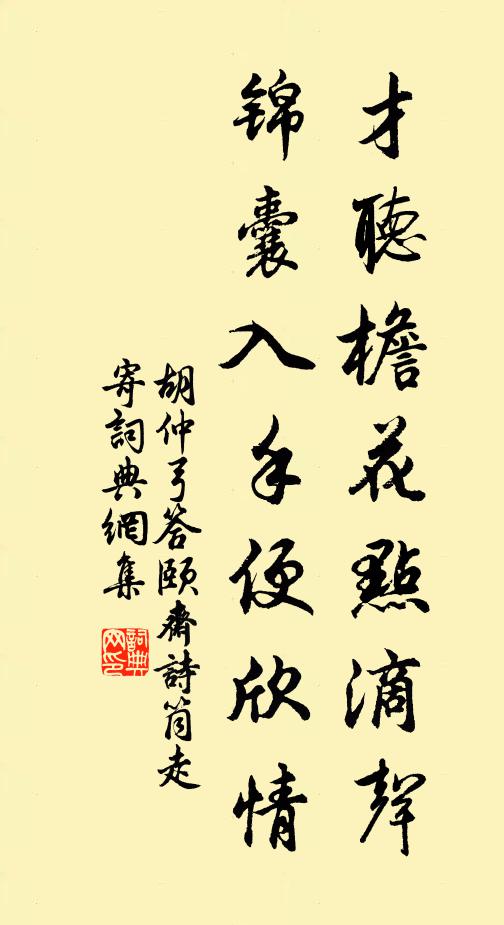 才聽檐花點滴聲
錦囊入手便欣情
胡仲弓答頤齋詩筒走
寄詞典網集
詞典
网印